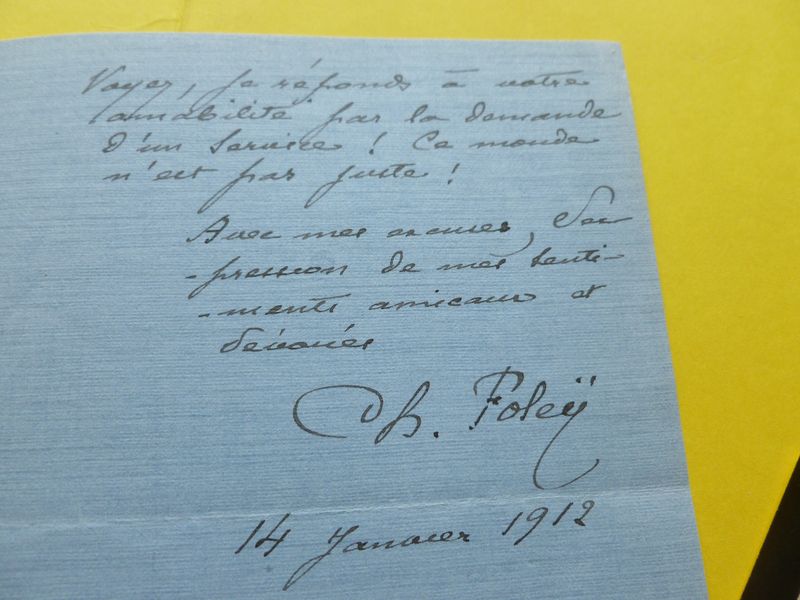 Voyez, je réponds à votre
amabilité par la demande
d'un service ! Ce monde
n'est pas juste !
Avec mes excuses, l'ex
-pression de mes senti-
-ments amicaux et
dévoués
Ch. Foleÿ
14 Janvier 1912